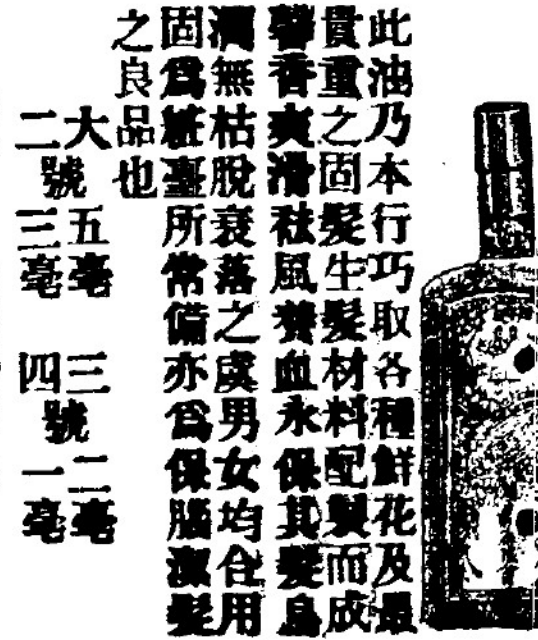 此油乃本行巧取各種鮮花及最
貴重之固髮生髮材料配製而成
馨香爽滑祛風養血永保其髮烏
潤無枯脫衰落之虞男女均合用
固爲粧臺所常備亦爲保腦潔髮
之良品也
大二號五毫三毫
三四號二毫一毫